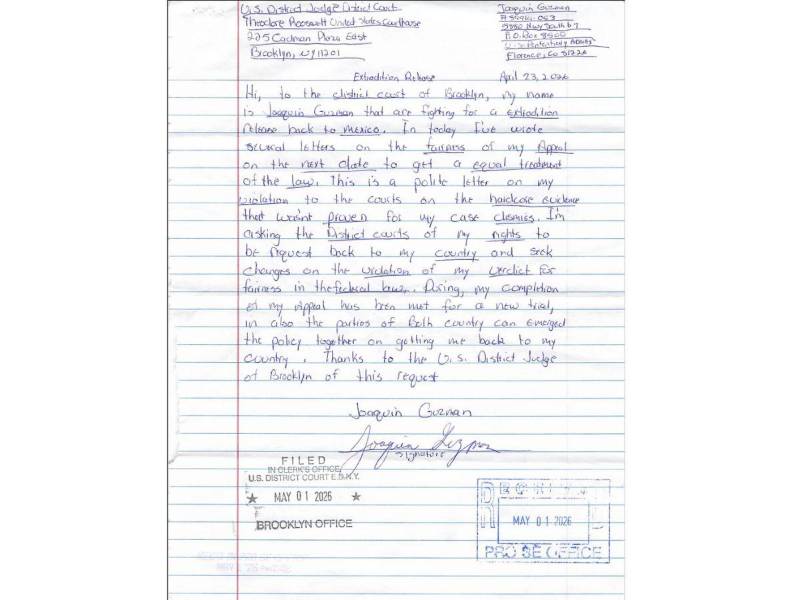 U.S. District Judge District Court
Theodore Roosevelt United States Courthouse
225 Cadman Plaza East
Brooklyn, NY 11201
Joaquin Guzman
5880 Hwy South 67
P.O. Box 8500
Florence, Co
Extradition Release
April 23, 2026
Hi, to the district court of Brooklyn, my name
is Joaquin Guzman that are fighting for a extradition
release back to mexico. In today I've wrote
several letters on the fairness of my Appeal
on the next date to get a equal treatment
of the law. This is a polite letter on my
violation to the courts on the hardcore evidence
that wasn't proven for my case dismiss. I'm
asking the District courts of my rights to
be request back to my country and seek
changes on the violation of my verdict for
fairness in the federal law. Dising, my completion
of my Appeal has been met for a new trial,
in also the parties of Both country can emerged
the policy together on getting me back to my
country. Thanks to the U.S. District Judge
of Brooklyn of this request
Joaquin Guzman
Joaquin Guzman
Signature
FILED
IN CLERK'S OFFICE
U.S. DISTRICT COURT E.D.N.Y.
★ MAY 01 2026 ★
BROOKLYN OFFICE
MAY 01 2026
PRO SE OFFICE